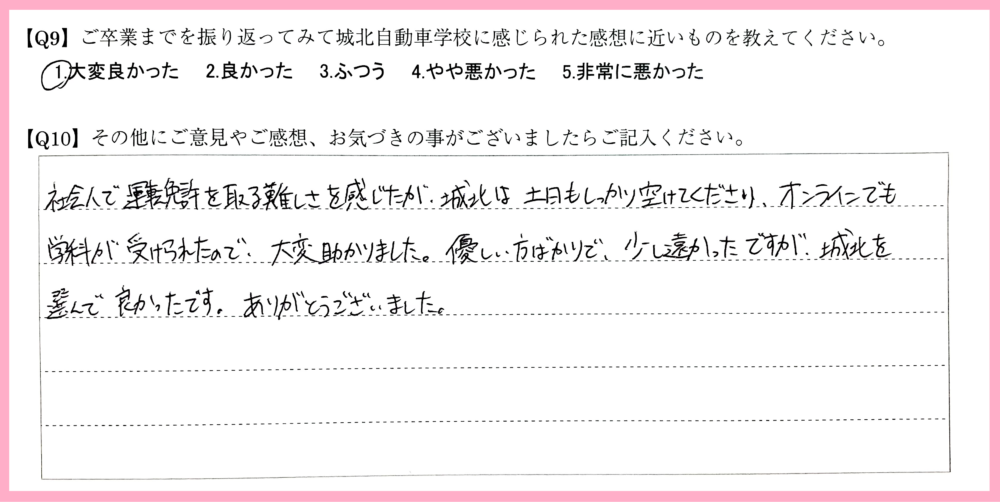 【Q9】ご卒業までを振り返ってみて城北自動車学校に感じられた感想に近いものを教えてください。
1.大変良かった 2.良かった 3.ふつう 4.やや悪かった 5.非常に悪かった
【Q10】その他にご意見やご感想、お気づきの事がございましたらご記入ください。
社会人で運転免許を取る難しさを感じたが、城北は土日もしっかり空けてくださり、オンラインでも
学科が受けられたので、大変助かりました。優しい方ばかりで、少し遠かったですが、城北を
選んで良かったです。ありがとうございました。